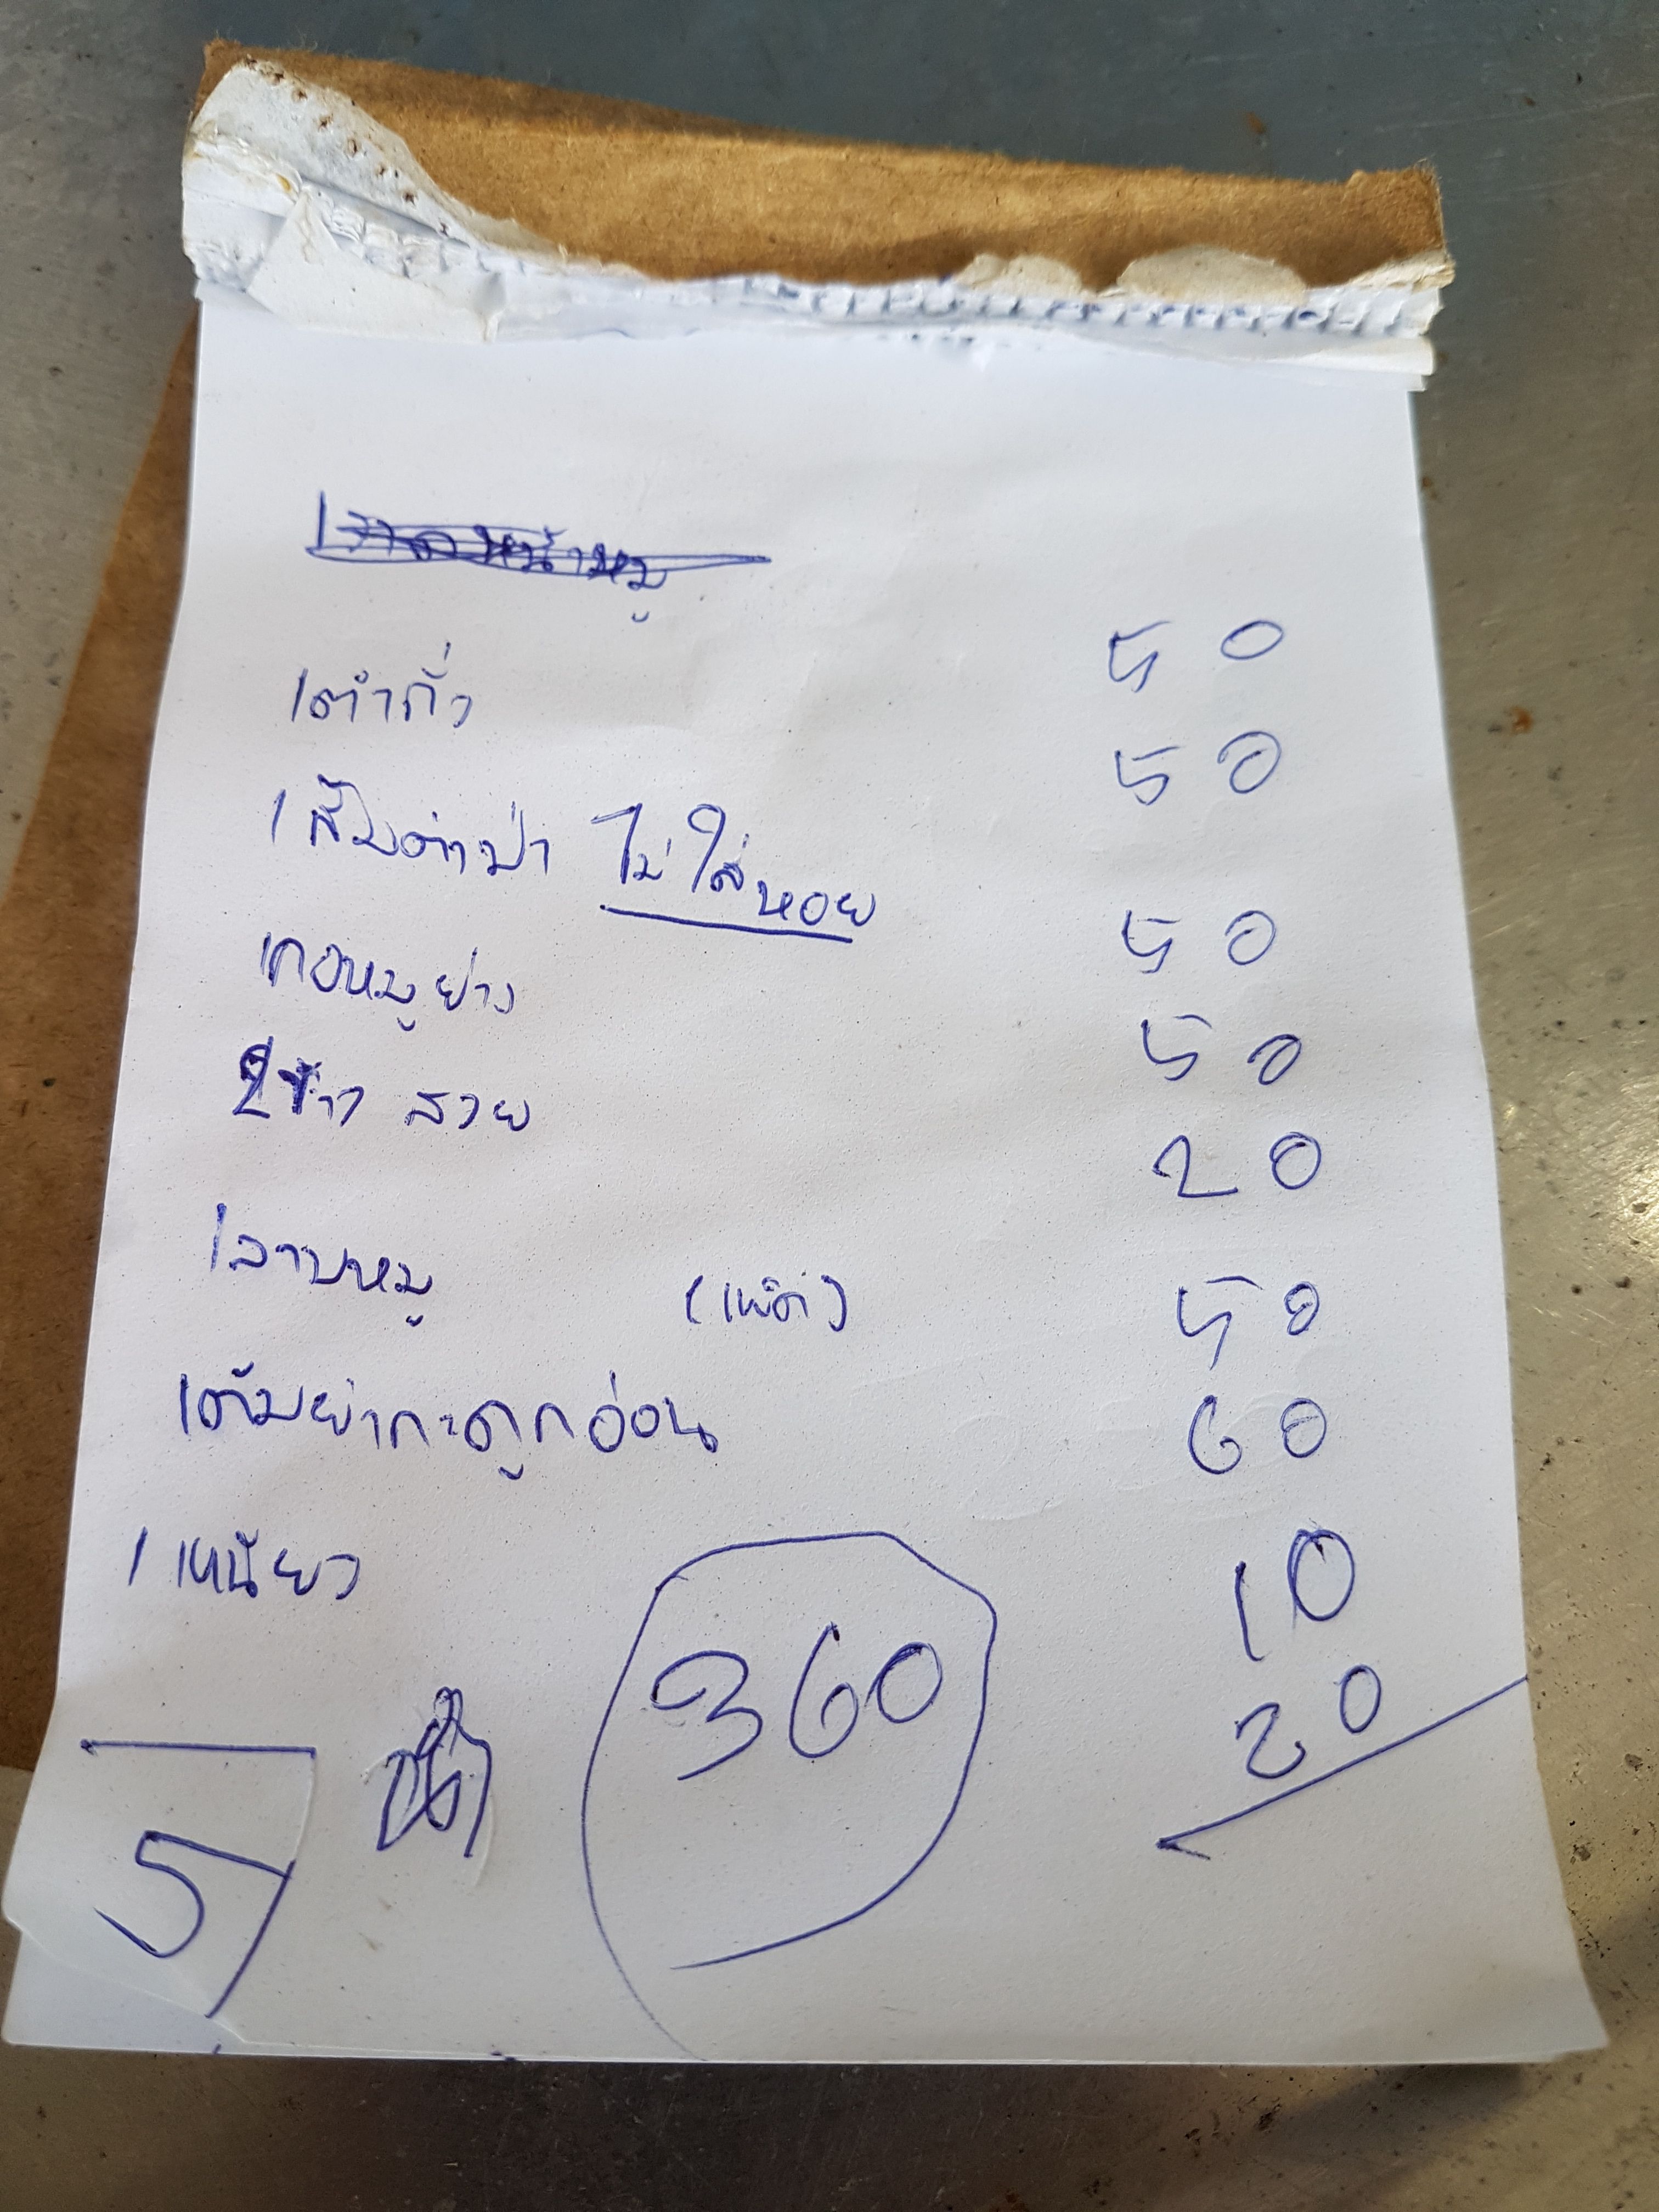 50
1 ตำถั่ว 50
1 ส้มตำป่า ไม่ใส่หอย
1 คอหมูย่าง 50
2 ข้าว สวย 50
20
1 ลาบหมู (เผ็ด) 50
1 ต้มยำกะดูกอ่อน 60
1 เหนียว 10
360
20
5